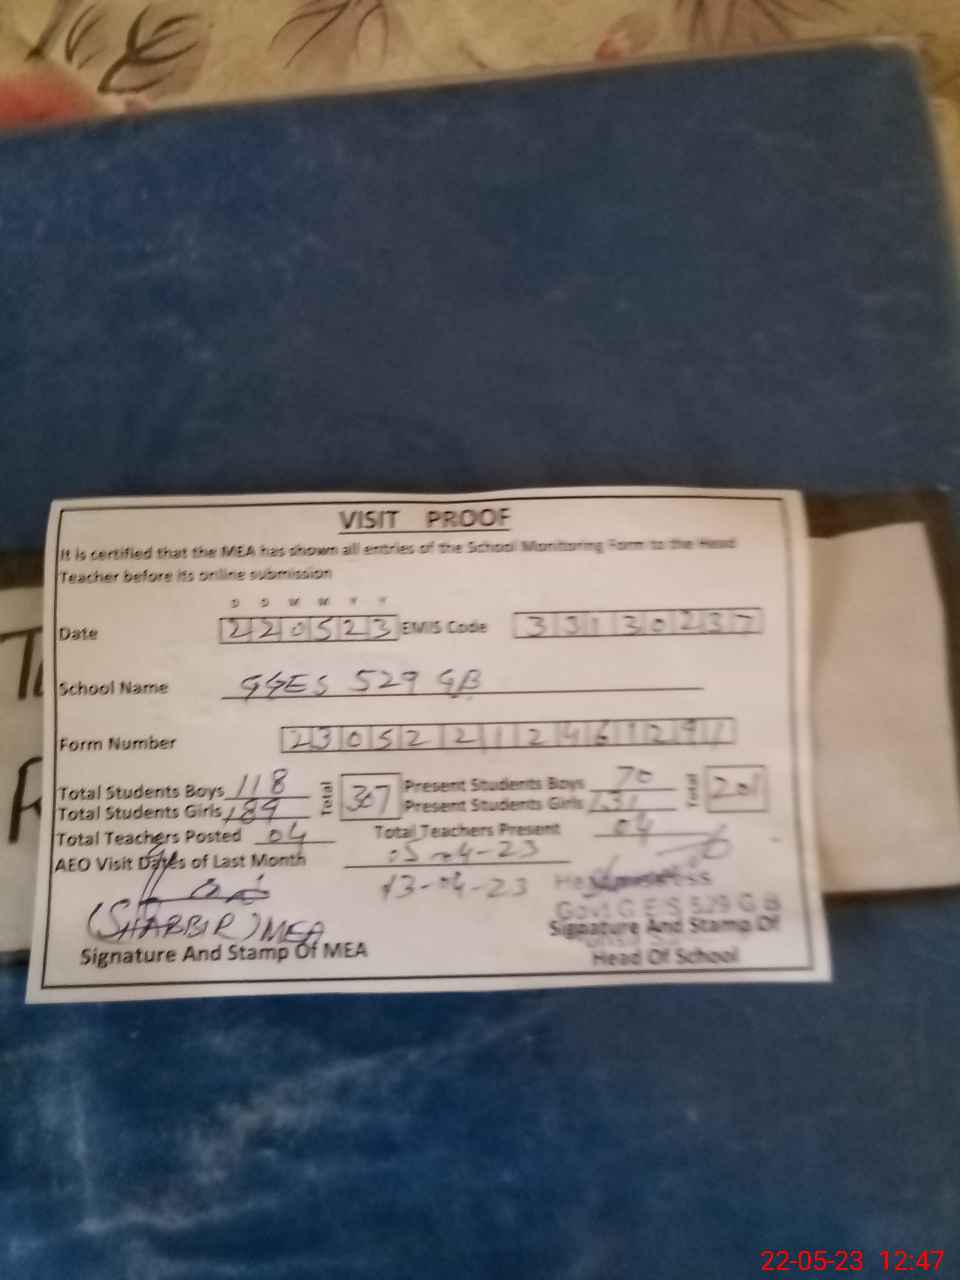 VISIT PROOF
It is certified that the MEA has shown all entries of the School Monitoring Form to the Head
Teacher before its online submission
D D M M Y Y
Date 220523 EMIS Code 33130237
School Name GGES 529 GB
Form Number 23052212461291
Total Students Boys 118 Total 307 Present Students Boys 70 Total 201
Total Students Girls 189 Present Students Girls 131
Total Teachers Posted 04 Total Teachers Present 04
AEO Visit Dates of Last Month 05-04-23
13-04-23
Headmistress
(SHABBIR) MEA
Govt G E S 529 G B
Signature And Stamp Of MEA
Signature And Stamp Of
Head Of School
22-05-23 12:47